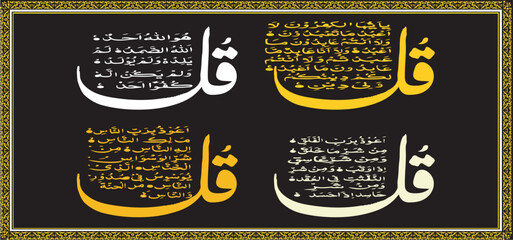 قُل
يٰاَيُّهَا الْكٰفِرُوْنَ لَا
اَعْبُدُ مَا تَعْبُدُوْنَ
وَلَا اَنْتُمْ عٰبِدُوْنَ مَا
اَعْبُدُ وَلَا اَنَا عَابِدٌ مَا
عَبَدْتُمْ وَلَا اَنْتُمْ
عٰبِدُوْنَ مَا اَعْبُدُ
لَكُمْ دِيْنُكُمْ
وَلِيَ دِيْنِ
قُل
هُوَ اللّٰهُ اَحَدٌ
اَللّٰهُ الصَّمَدُ لَمْ
يَلِدْ وَلَمْ يُوْلَدْ
وَلَمْ يَكُنْ لَهُ
كُفُوًا اَحَدٌ
قُل
اَعُوْذُ بِرَبِّ الْفَلَقِ
مِنْ شَرِّ مَا خَلَقَ
وَمِنْ شَرِّ غَاسِقٍ
اِذَا وَقَبَ وَمِنْ شَرِّ
النَّفّٰثٰتِ فِي الْعُقَدِ
وَمِنْ شَرِّ
حَاسِدٍ اِذَا حَسَدَ
قُل
اَعُوْذُ بِرَبِّ النَّاسِ
مَلِكِ النَّاسِ
اِلٰهِ النَّاسِ مِنْ
شَرِّ الْوَسْوَاسِ
الْخَنَّاسِ الَّذِيْ
يُوَسْوِسُ فِيْ صُدُوْرِ
النَّاسِ مِنَ الْجِنَّةِ
وَالنَّاسِ